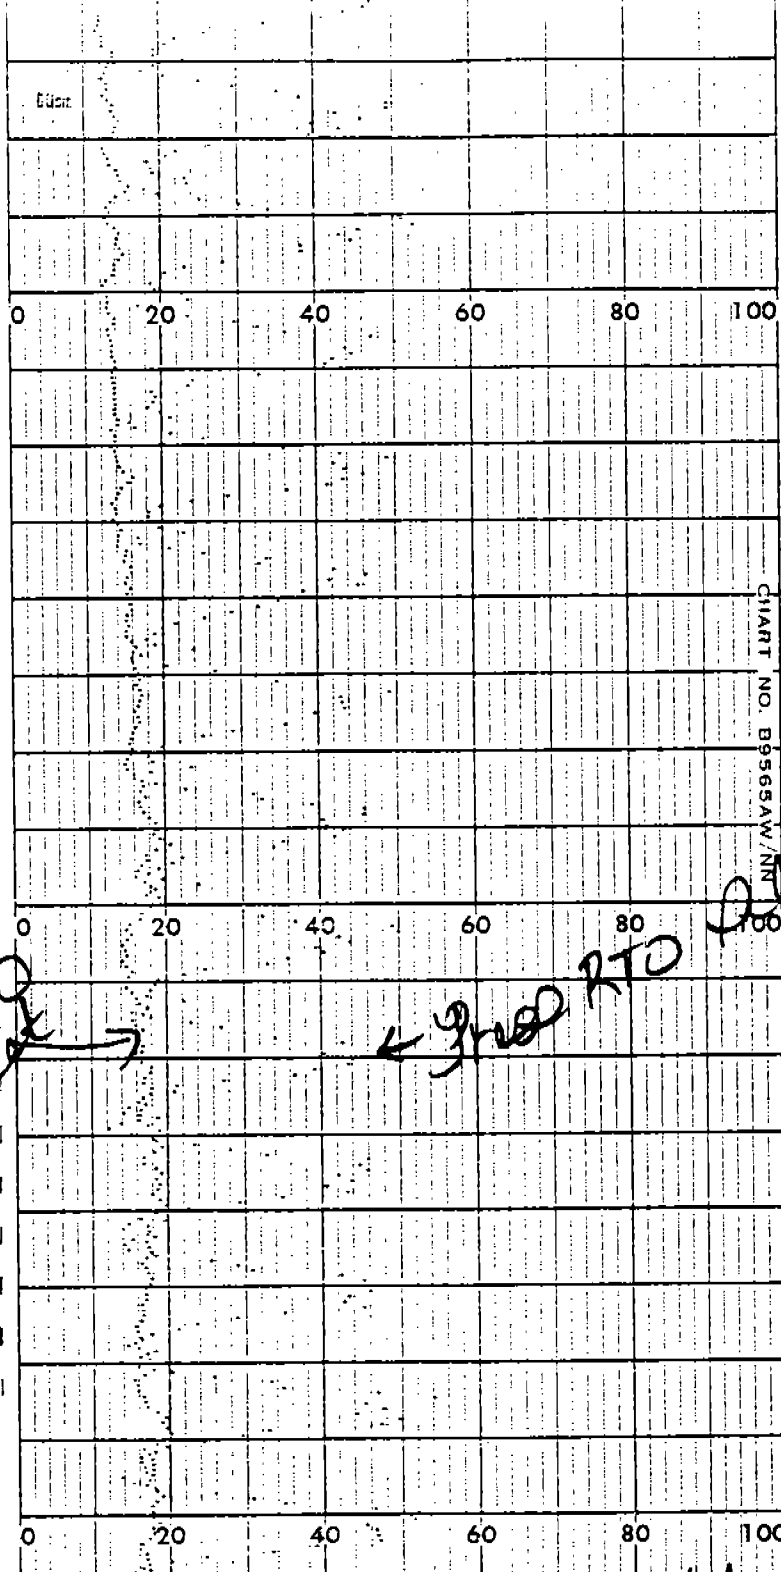 0 20 40 60 80 100
CHART NO. B9565AW/NN
0 20 40 60 80 100
RTO
0 20 40 60 80 100